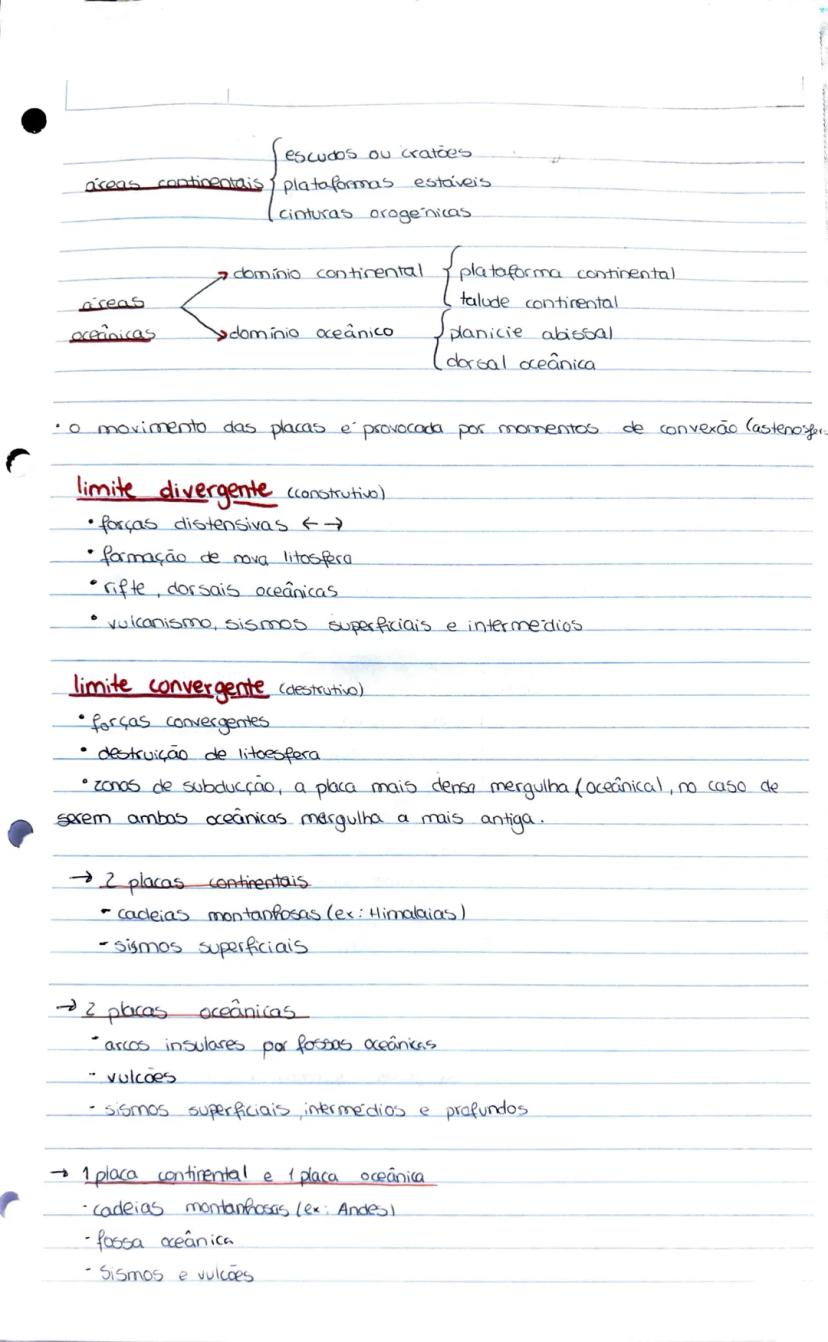 escudos ou cratões
áreas continentais plataformas estáveis
cinturas orogénicas
→ domínio continental plataforma continental
áreas talude continental
oceânicas → domínio oceânico planicie abissal
dorsal oceânica
• o movimento das placas é provocada por momentos de convexão (astenosfer
limite divergente (construtivo)
• forças distensivas ← →
• formação de nova litosfera
• rifte, dorsais oceânicas
• vulcanismo, sismos superficiais e intermédios
limite convergente (destrutivo)
• forças convergentes
• destruição de litoesfera
• zonas de subducção, a placa mais densa mergulha (oceânica), no caso de
serem ambas oceânicas mergulha a mais antiga.
→ 2 placas continentais
- cadeias montanhosas (ex: Himalaias)
- sismos superficiais
→ 2 placas oceânicas
- arcos insulares por fossas oceânicas
- vulcões
- sismos superficiais, intermédios e profundos
→ 1 placa continental e 1 placa oceânica
- cadeias montanhosas (ex: Andes)
- fossa oceânica
- sismos e vulcões